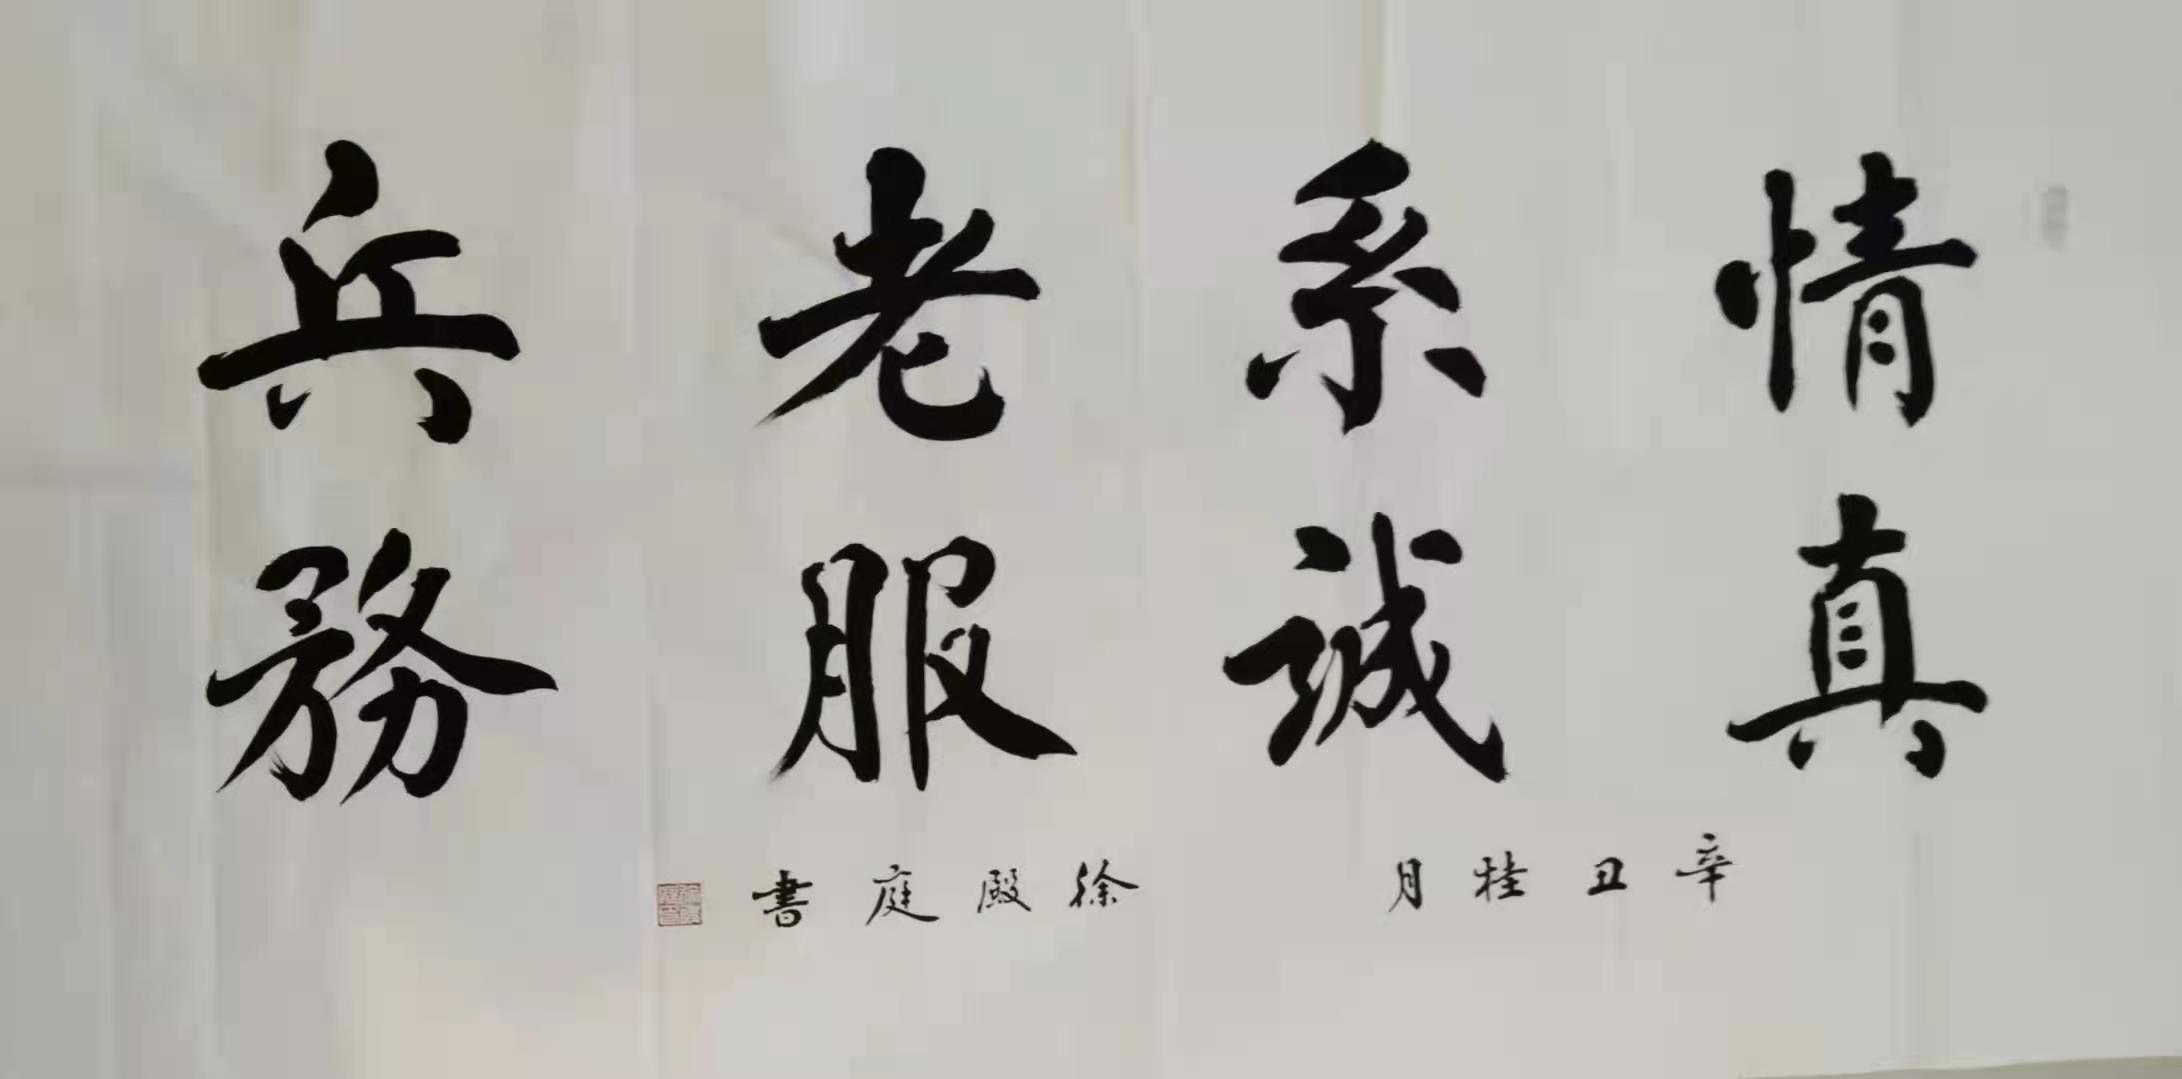 情系老兵
真誠服務
辛丑桂月 徐殿庭書